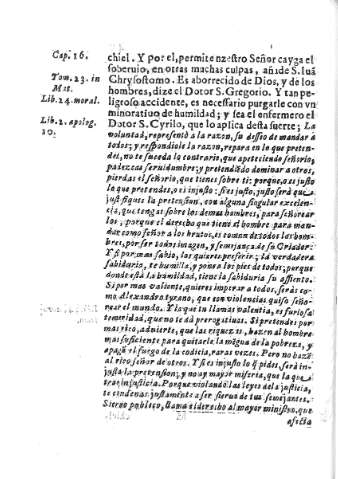 Cap. 16.
Tom. 23. in
Mat.
Lib. 24. moral.
Lib. 2. apolog.
10.
chiel. Y por el, permite nuestro Señor cayga el
soberuio, en otras muchas culpas, añade S. Iuã
Chrysostomo. Es aborrecido de Dios, y de los
hombres, dize el Dotor S. Gregorio. Y tan pe-
ligroso accidente, es necessario purgarle con vn
minoratiuo de humildad; y sea el enfermero el
Dotor S. Cyrilo, que lo aplica desta suerte; La
voluntad, representò a la razon, su desseo de mandar a
todos; y respondiole la razon, repara en lo que preten-
des, no te suceda lo contrario, que apeteciendo señorio,
padezcas seruidumbre; y pretendiendo dominar a otros,
pierdas el señorio, que tienes sobre ti: porque, o es justo
lo que pretendes, o es injusto: si es justo, justo serà que
justifiques la pretension, con alguna singular excelen-
cia, que tengas sobre los demas hombres, para señorear
los, porque el derecho que tiene el hombre para man-
dar como señor a los brutos, es comun de todos los hom-
bres, por ser todos imagen, y semejança de su Criador:
Y si por mas sabio, los quieres preferir: la verdadera
sabiduria, se humilla, y pone a los pies de todos; porque
donde està la humildad, tiene la sabiduria su assiento.
Si por mas valiente, quieres imperar a todos, seràs co-
mo Alexandro tyrano, que con violencias quiso seño-
rear el mundo. Y la que tu llamas valentia, es furiosa
temeridad, que no te dà prerogatiuas. Si pretendes por
mas rico, aduierte, que las riquezas, hazen al hombre
mas suficiente para quitarle la mẽgua de la pobreza, y
apagã el fuego de la codicia, raras vezes. Pero no hazẽ
al rico señor de otros. Y si es injusto lo q̃ pides, serà in-
justa la pretension; y no ay mayor miseria, que la que
trae injusticia. Porque violando las leyes de la justicia,
te condenas justamente a ser sieruo de tus semejantes.
Sieruo publico, llama el derecho al mayor ministro, que
oficia